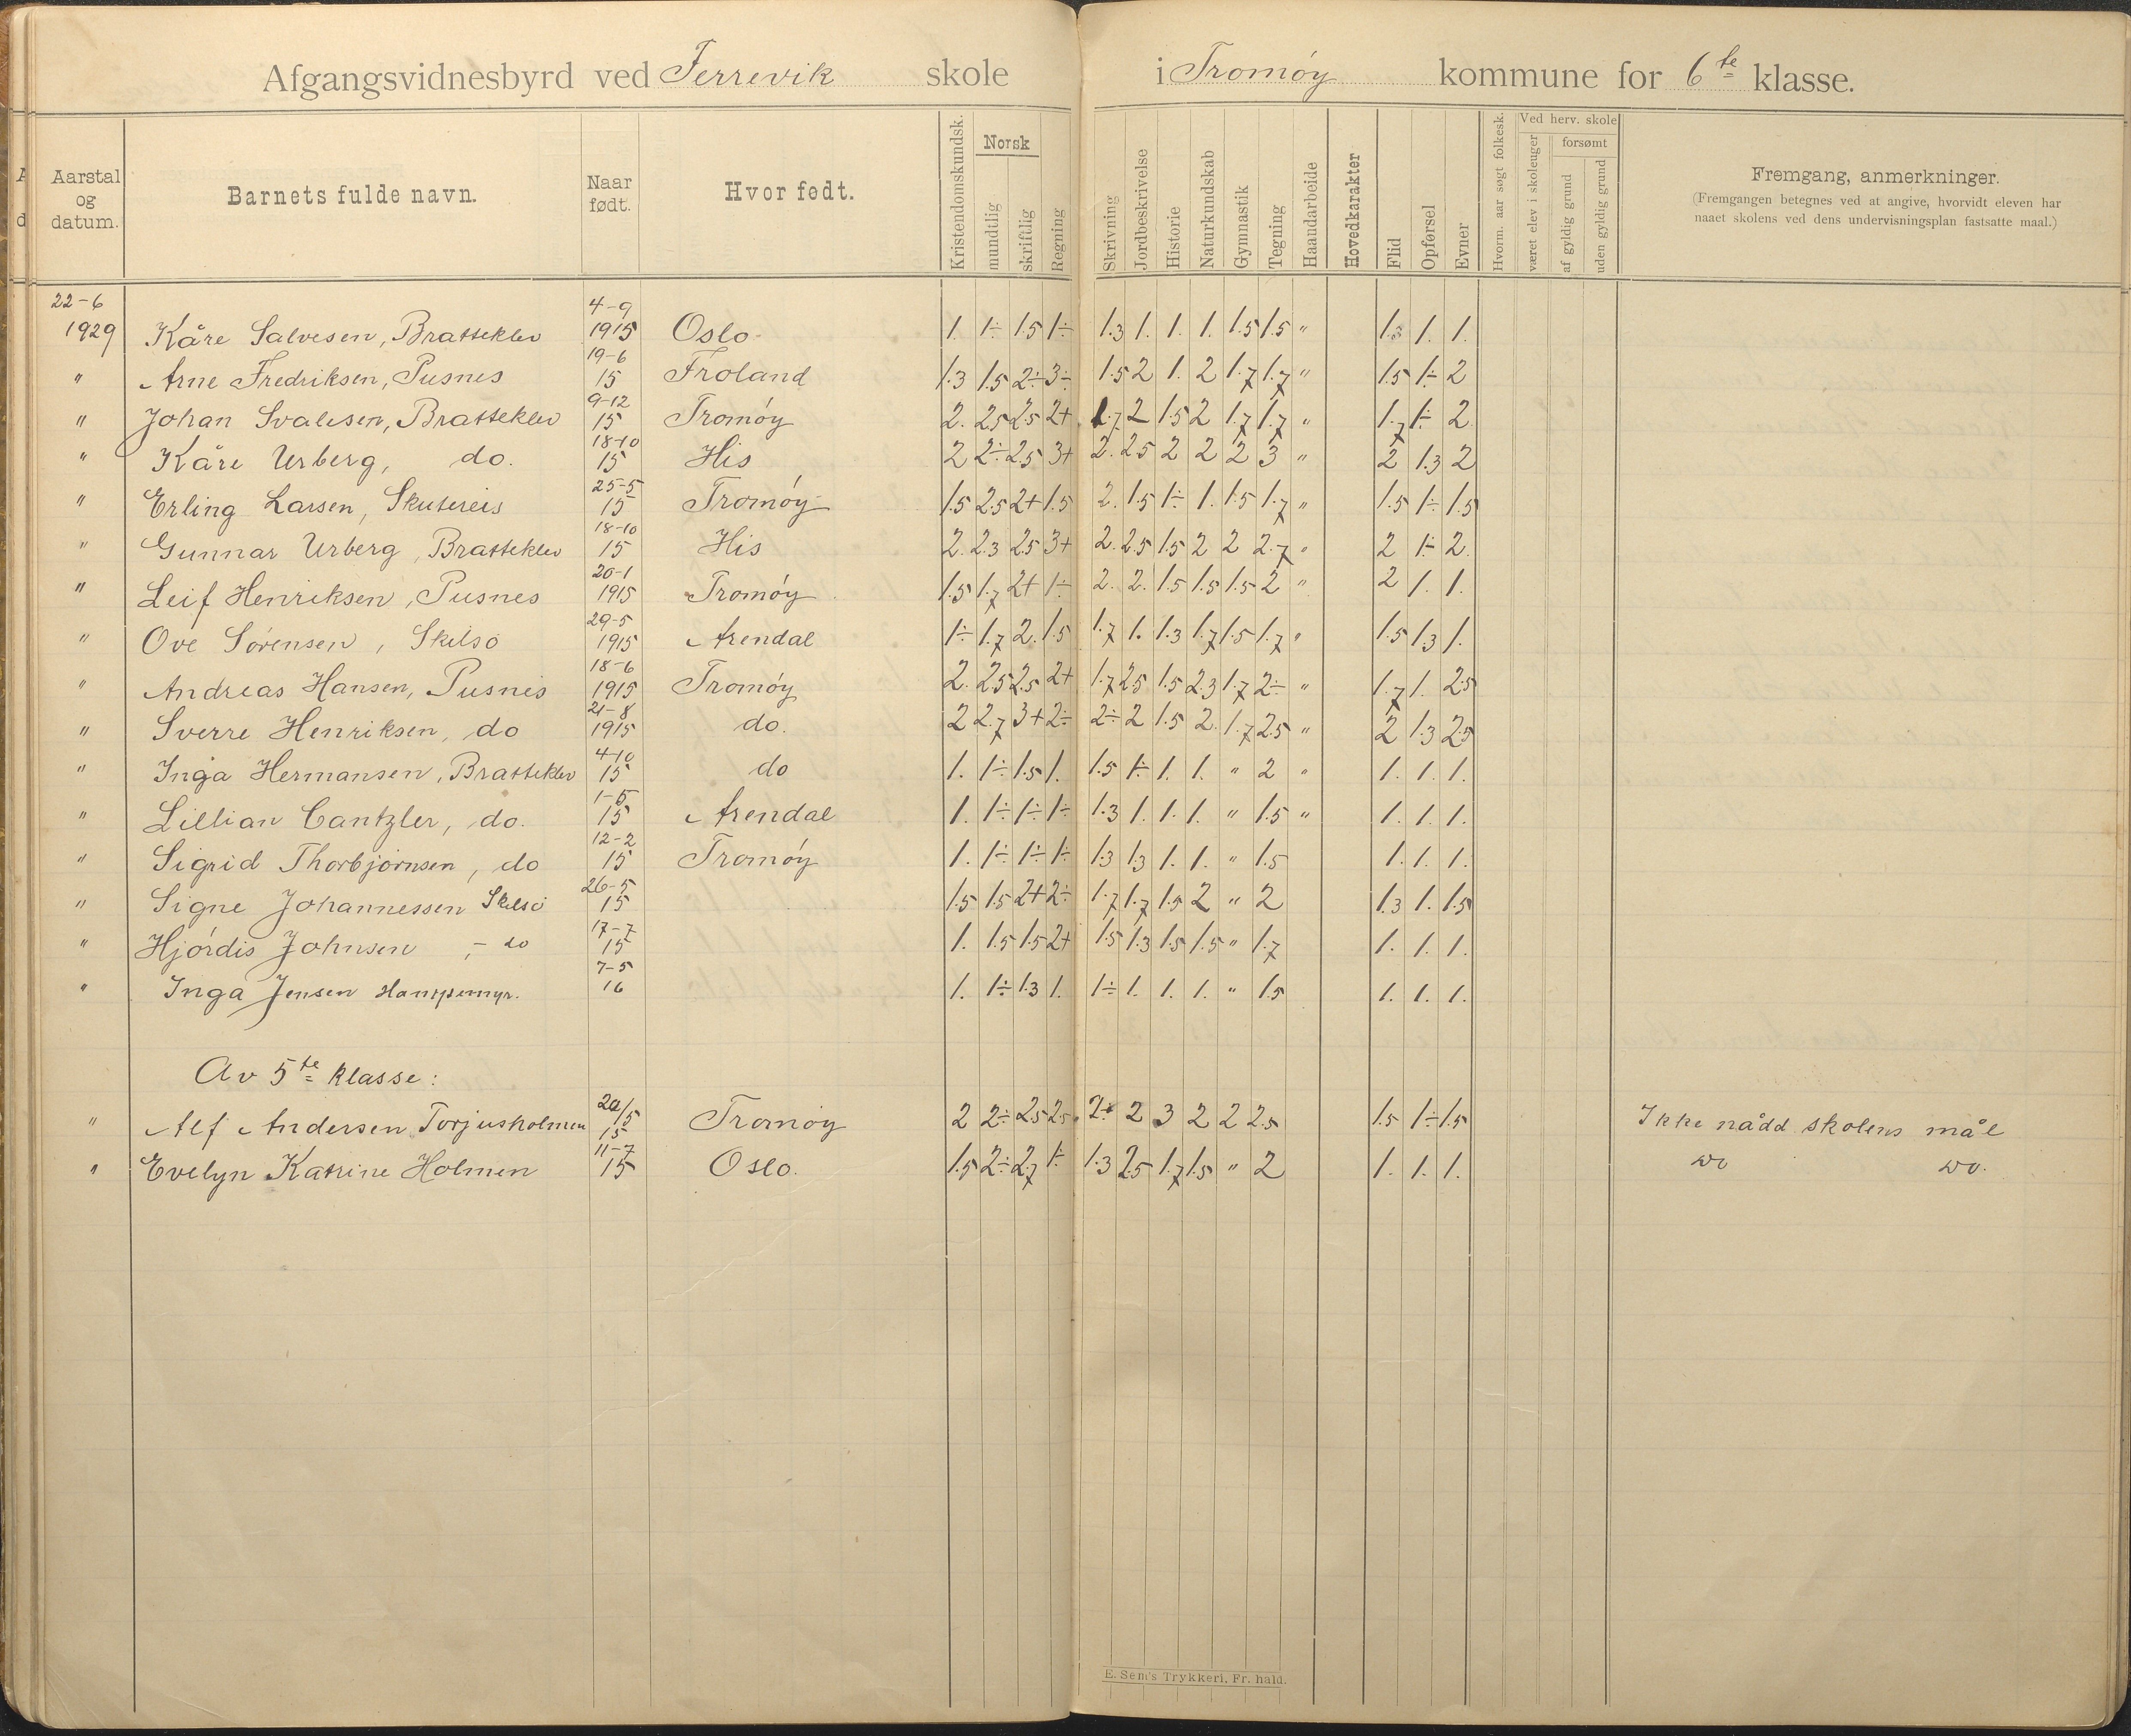 Afgangsvidnesbyrd ved Færrevik skole i Tromöy kommune for 6te klasse.
Aarstal og datum. Barnets fulde navn. Naar født. Hvor født. Kristendomskundsk. Norsk mundtlig skriftlig Regning Skrivning Jordbeskrivelse Historie Naturkundskab Gymnastik Tegning Haandarbeide Hovedkarakter Flid Opførsel Evner Hvorm. aar søgt folkesk. Ved herv. skole været elev i skoleuger forsømt af gyldig grund uden gyldig grund Fremgang, anmerkninger.
(Fremgangen betegnes ved at angive, hvorvidt eleven har
naaet skolens ved dens undervisningsplan fastsatte maal.)
22-6 1929 Kåre Salvesen, Bratteklev 4-9 1915 Oslo 1. 1÷ 1.5 1÷ 1.3 1. 1. 1. 1.5 1.5 " 1.3 1. 1.
" Arne Fredriksen, Pusnes 19-6 15 Froland 1.3 1.5 2÷ 3÷ 1.5 2 1. 2 1.7 1.7 " 1.5 1÷ 2
" Johan Svalesen, Bratteklev 9-12 15 Tromöy 2. 2.5 2.5 2+ 1.7 2 1.5 2 1.7 1.7 " 1.7 1÷ 2
" Kåre Urberg, do. 18-10 15 His 2 2÷ 2.5 3+ 2. 2.5 2 2 2 3 " 2 1.3 2
" Erling Larsen, Skutereis 25-5 15 Tromöy 1.5 2.5 2+ 1.5 2. 1.5 1÷ 1. 1.5 1.7 " 1.5 1÷ 1.5
" Gunnar Urberg, Bratteklev 18-10 15 His 2. 2.3 2.5 3+ 2. 2.5 1.5 2 2 2.7 " 2 1÷ 2.
" Leif Henriksen, Pusnes 20-1 1915 Tromöy 1.5 1.7 2+ 1÷ 2. 2. 1.5 1.5 1.5 2 " 2 1. 1.
" Ove Sörensen, Skilsö 29-5 1915 Arendal 1÷ 1.7 2. 1.5 1.7 1. 1.3 1.7 1.5 1.7 " 1.5 1.3 1.
" Andreas Hansen, Pusnes 18-6 1915 Tromöy 2. 2.5 2.5 2+ 1.7 2.5 1.5 2.3 1.7 2÷ " 1.7 1. 2.5
" Sverre Henriksen, do 21-8 1915 do. 2 2.7 3+ 2÷ 2÷ 2 1.5 2. 1.7 2.5 " 2 1.3 2.5
" Inga Hermansen, Bratteklev 4-10 15 do 1. 1÷ 1.5 1. 1.5 1÷ 1. 1. " 2 " 1. 1. 1.
" Lillian Cantzler, do. 1-5 15 Arendal 1. 1÷ 1÷ 1÷ 1.3 1. 1. 1. " 1.5 " 1. 1. 1.
" Sigrid Thorbjörnsen, do 12-2 15 Tromöy 1. 1÷ 1÷ 1÷ 1.3 1.3 1. 1. " 1.5 1. 1. 1.
" Signe Johannessen Skilsö 26-5 15 1.5 1.5 2+ 2÷ 1.7 1.7 1.5 2 " 2 1.3 1. 1.5
" Hjördis Johnsen, - do 17-7 15 1. 1.5 1.5 2+ 1.5 1.3 1.5 1.5 " 1.7 1. 1. 1.
" Inga Jensen 7-5 16 1. 1÷ 1.3 1. 1÷ 1. 1. 1. " 1.5 1. 1. 1.
Av 5te klasse:
" Alf Andersen Torjusholmen 15 Tromöy 2 2÷ 2.5 2.5 2÷ 2 3 2 2 2.5 1.5 1÷ 1.5 Ikke nådd skolens mål
" Evelyn Katrine Holmen 11-7 15 Oslo. 1.5 2÷ 2.7 1÷ 1.3 2.5 1.7 1.5 " 2 1. 1. 1. do do.
E. Sem's Trykkeri, Fr. hald.